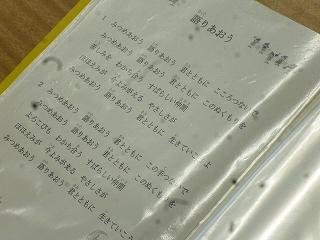 語りあおう
1 みつめあおう 語りあおう 君とともに こころつないで
みつめあおう 語りあおう 君とともに このぬくもりを
悲しみを わかち合う すばらしい仲間
ほほえみが 今よみがえる やさしさが
みつめあおう 語りあおう 君とともに 生きていこうよ
2 みつめあおう 語りあおう 君とともに この手つないで
みつめあおう 語りあおう 君とともに このぬくもりを
よろこびも わかち合う すばらしい仲間
ほほえみが 今よみがえる やさしさが
みつめあおう 語りあおう 君とともに 生きていこう